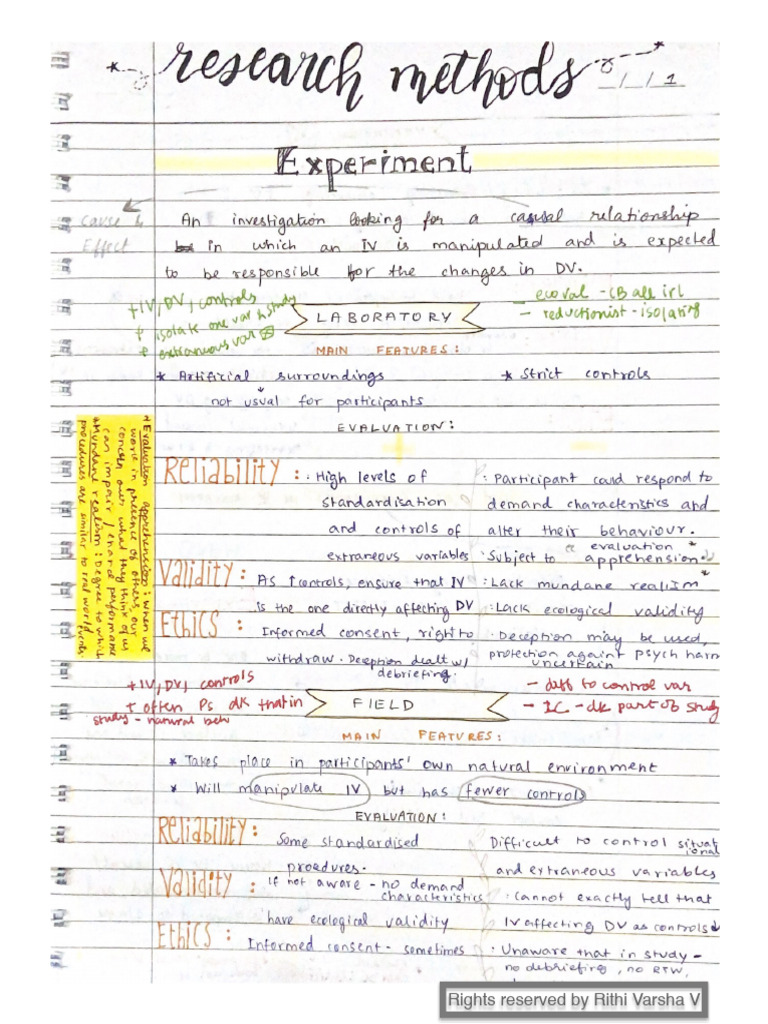 research methods
/ / 1
Experiment
Cause &
Effect
An investigation looking for a causal relationship
in which an IV is manipulated and is expected
to be responsible for the changes in DV.
+IV, DV, controls
+ isolate one var & study
+ extraneous var
LABORATORY
- eco val - CB all irl
- reductionist - isolating
MAIN FEATURES:
* Artificial surroundings
* Strict controls
not usual for participants
EVALUATION:
+
-
* Evaluation apprehension: When we
work in presence of others, our
concern over what they think of us
can impair / enhand performance
* Mundane realism: Degree to which
procedures are similar to real world
events.
Reliability :
· High levels of
standardisation
and controls of
extraneous variables
: Participant could respond to
demand characteristics and
alter their behaviour.
· Subject to evaluation *
apprehension
Validity :
As ↑ controls, ensure that IV
is the one directly affecting DV
: Lack mundane realism *
: Lack ecological validity
Ethics :
Informed consent, right to
withdraw. Deception dealt w/
debriefing.
: Deception may be used,
protection againt psych harm
uncertain
+IV, DV, controls
+ often Ps dk that in
study - natural beh
FIELD
- diff to control var
- IC - dk part of study
MAIN FEATURES:
* Takes place in participants' own natural environment
* Will manipulate IV but has fewer controls
EVALUATION:
Reliability :
Some standardised
procedures.
Difficult to control situat
ional
and extraneous variables
Validity :
If not aware - no demand
characteristics
have ecological validity
: Cannot exactly tell that
IV affecting DV as controls ↓
Ethics :
Informed consent - sometimes
: Unaware that in study -
no debriefing, no RTW,
Rights reserved by Rithi Varsha V